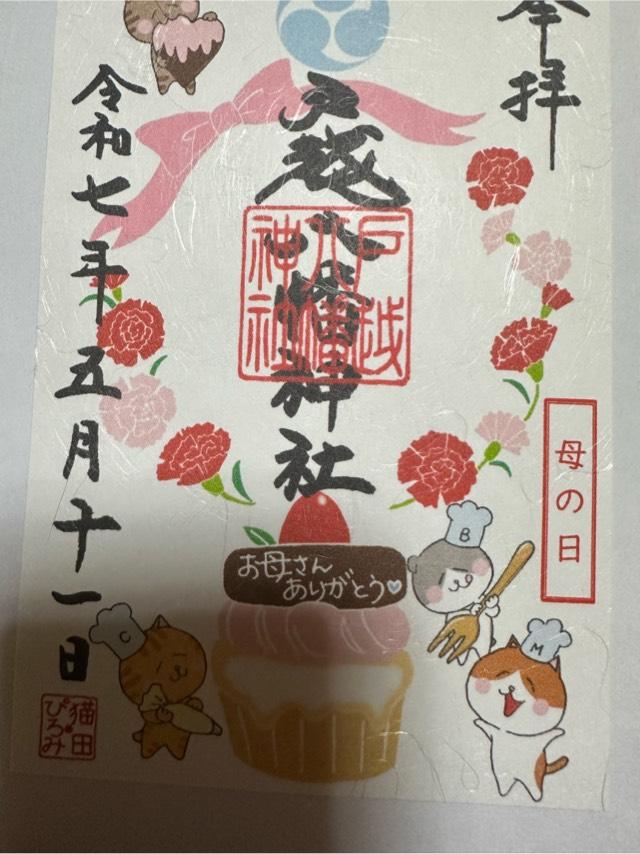 奉拝
戸越八幡神社
戸越
八幡
神社
令和七年五月十一日
母の日
お母さん
ありがとう
B
M
C
猫田
ぴろみ